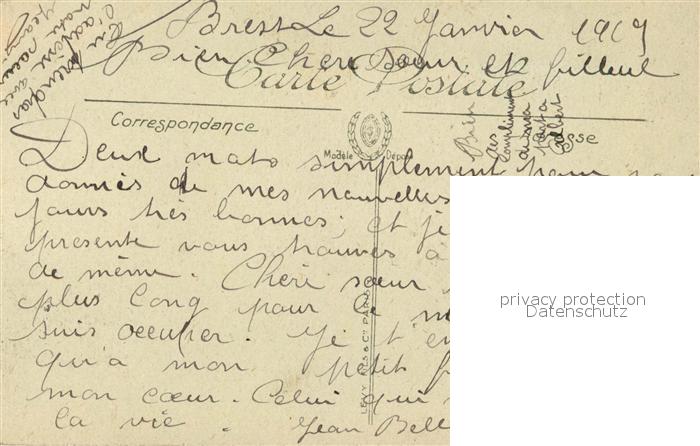 Brest Le 22 Janvier 1919
Bien Chère Soeur et filleul
Carte Postale
Correspondance
Modèle Déposé
sse
Deux mots simplement pour
donnés de mes nouvelles
jours très bonnes, et je
présente vous trouves a
de même. Chéri sœur
plus long pour le m
suis occuper. Je t'en
qu'a mon petit f
mon cœur. Celui qui
la vie. Jean Bell
Bien
des
compliments
Albert
LEVY FILS & Cie PARIS
privacy protection
Datenschutz